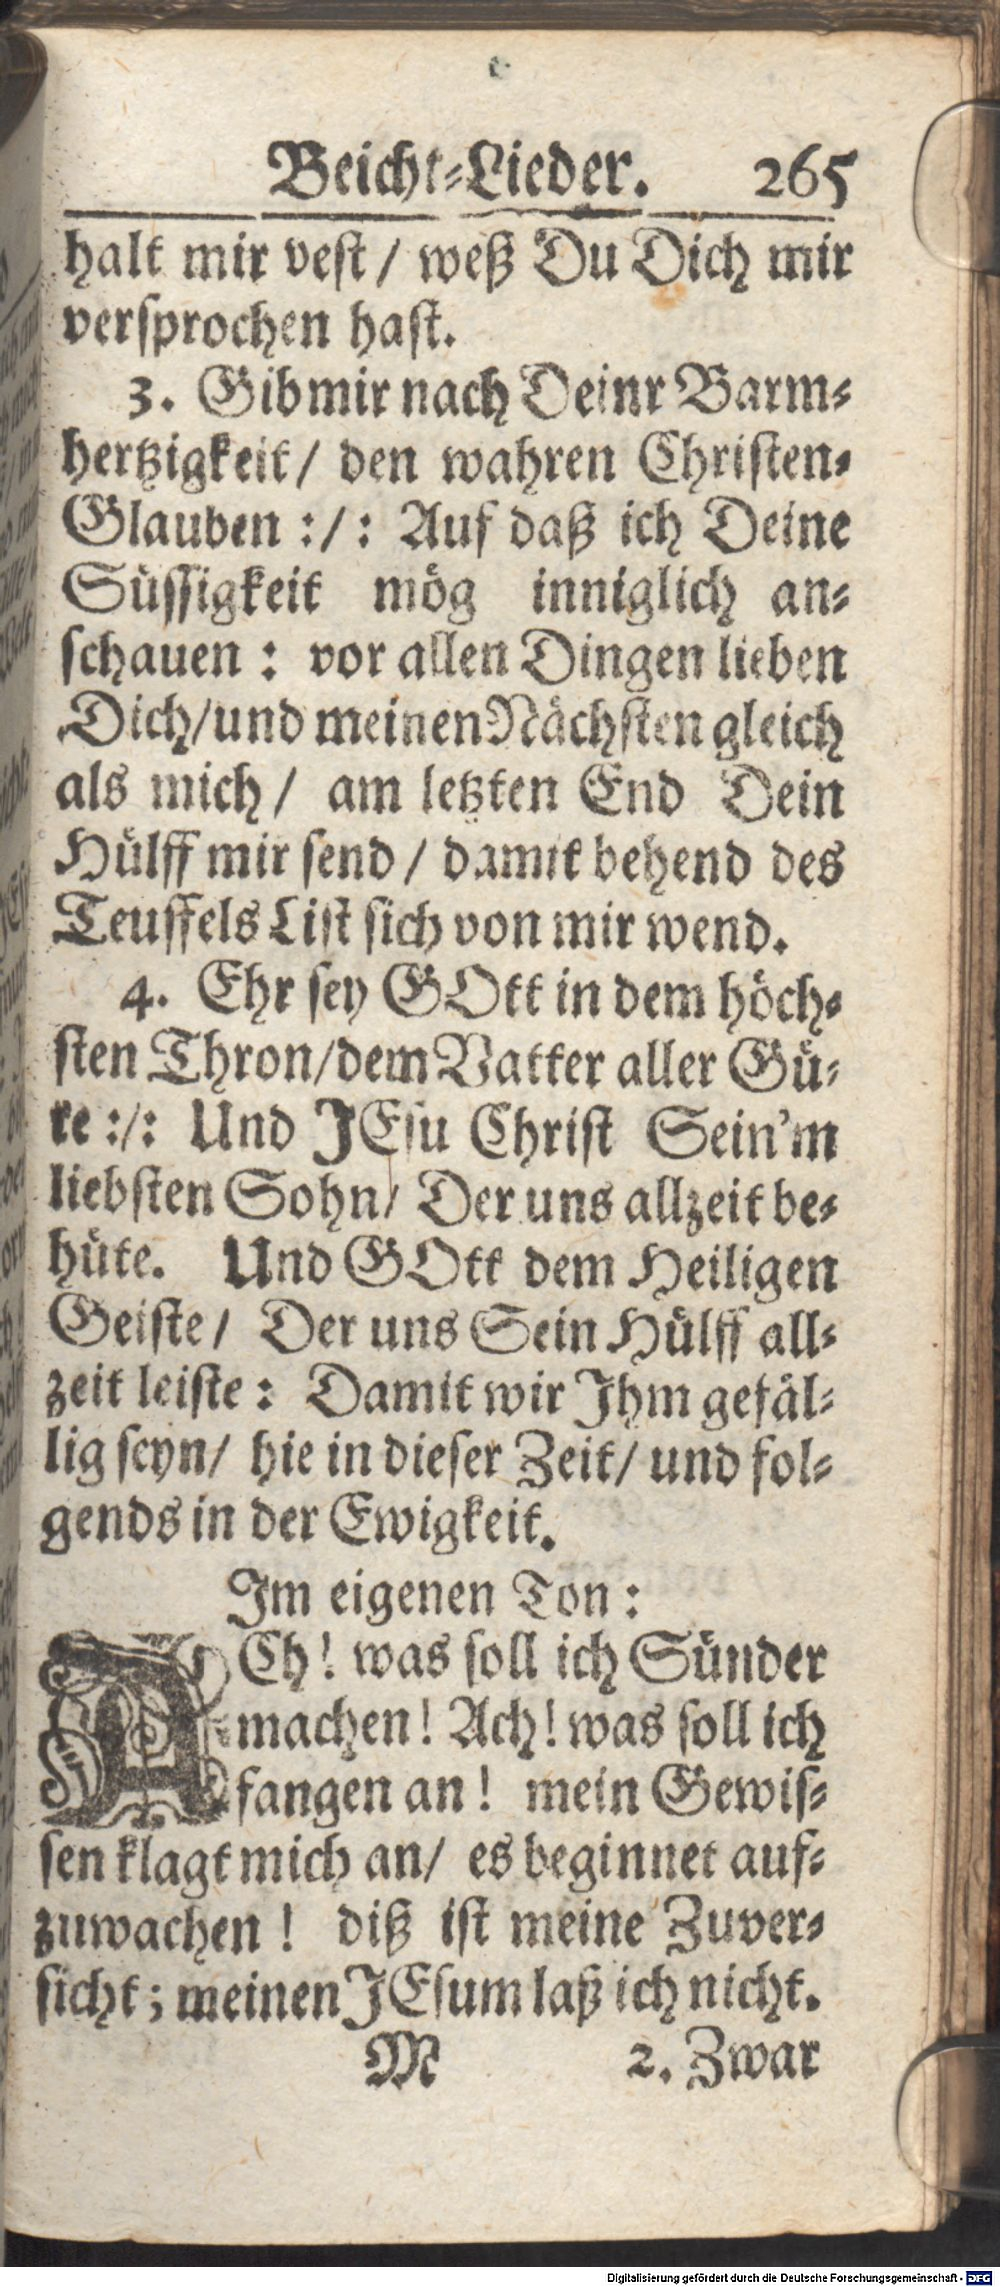 Beicht-Lieder. 265
halt mir vest / weß Du Dich mir
versprochen hast.
3. Gib mir nach Deinr Barm-
hertzigkeit / den wahren Christen-
Glauben :/: Auf daß ich Deine
Süssigkeit mög inniglich an-
schauen : vor allen Dingen lieben
Dich / und meinen Nächsten gleich
als mich / am letzten End Dein
Hülff mir send / damit behend des
Teuffels List sich von mir wend.
4. Ehr sey GOtt in dem höch-
sten Thron / dem Vatter aller Gü-
te :/: Und JEsu Christ Sein'm
liebsten Sohn / Der uns allzeit be-
hüte. Und GOtt dem Heiligen
Geiste / Der uns Sein Hülff all-
zeit leiste : Damit wir Jhm gefäl-
lig seyn / hie in dieser Zeit / und fol-
gends in der Ewigkeit.
Jm eigenen Ton :
ACh! was soll ich Sünder
machen! Ach! was soll ich
fangen an! mein Gewis-
sen klagt mich an / es beginnet auf-
zuwachen! diß ist meine Zuver-
sicht; meinen JEsum laß ich nicht.
M 2. Zwar
Digitalisierung gefördert durch die Deutsche Forschungsgemeinschaft - DFG